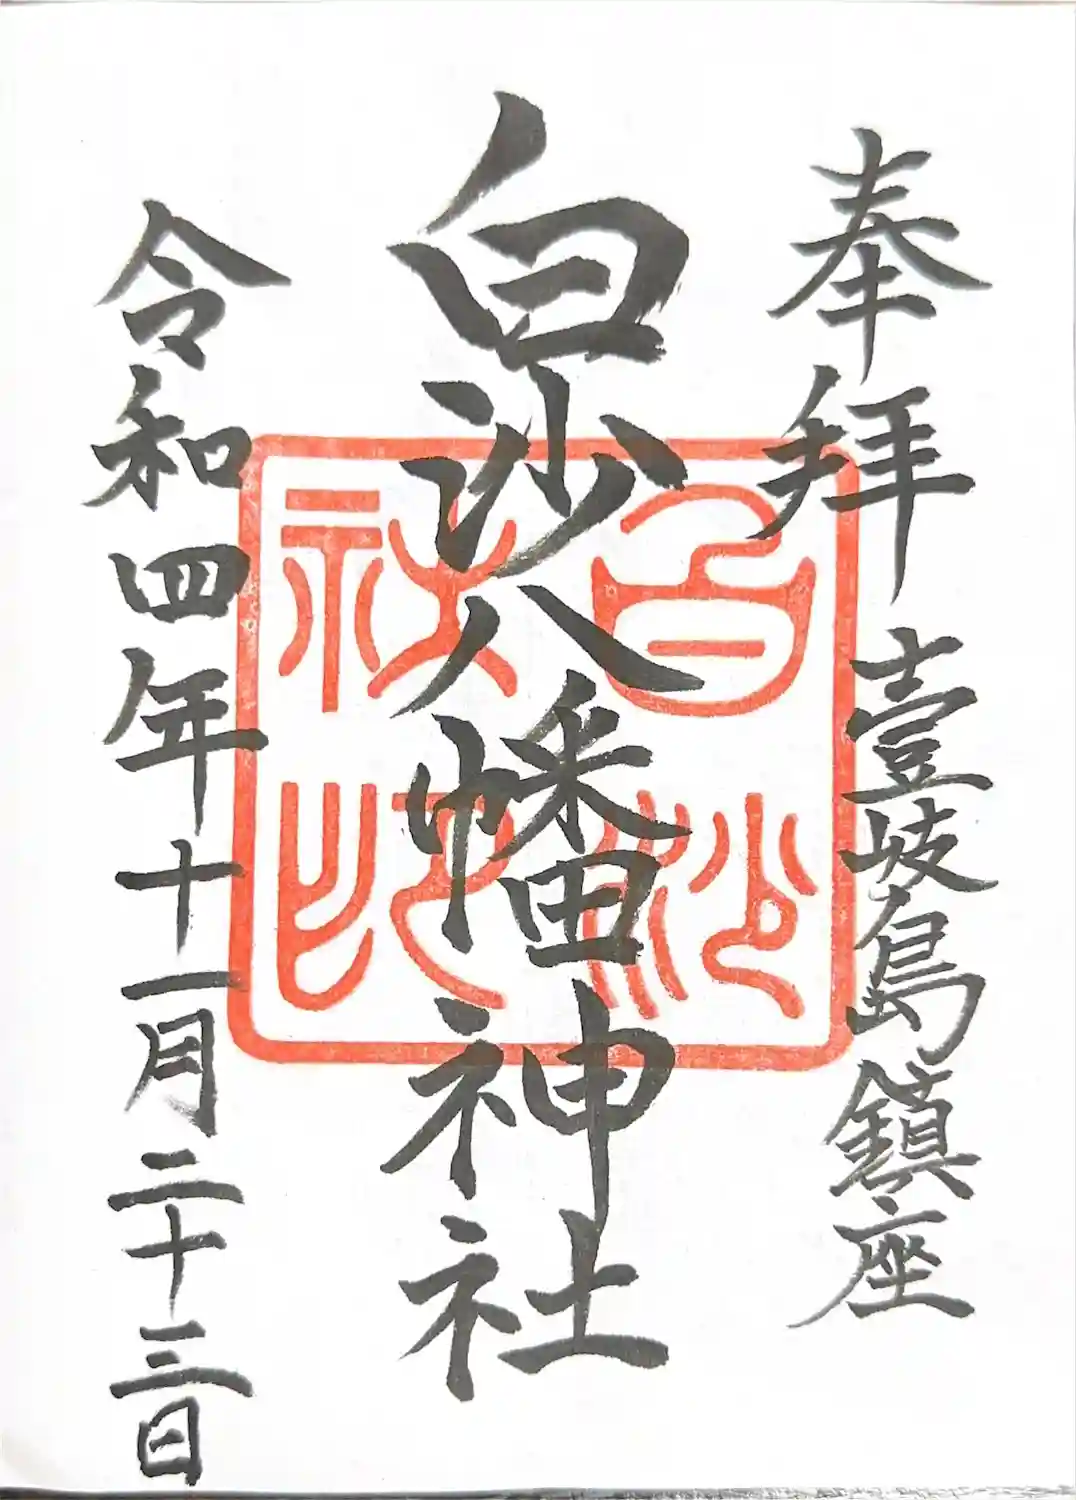 奉拝 壹岐島鎮座
白沙八幡神社
令和四年十一月二十三日
白沙